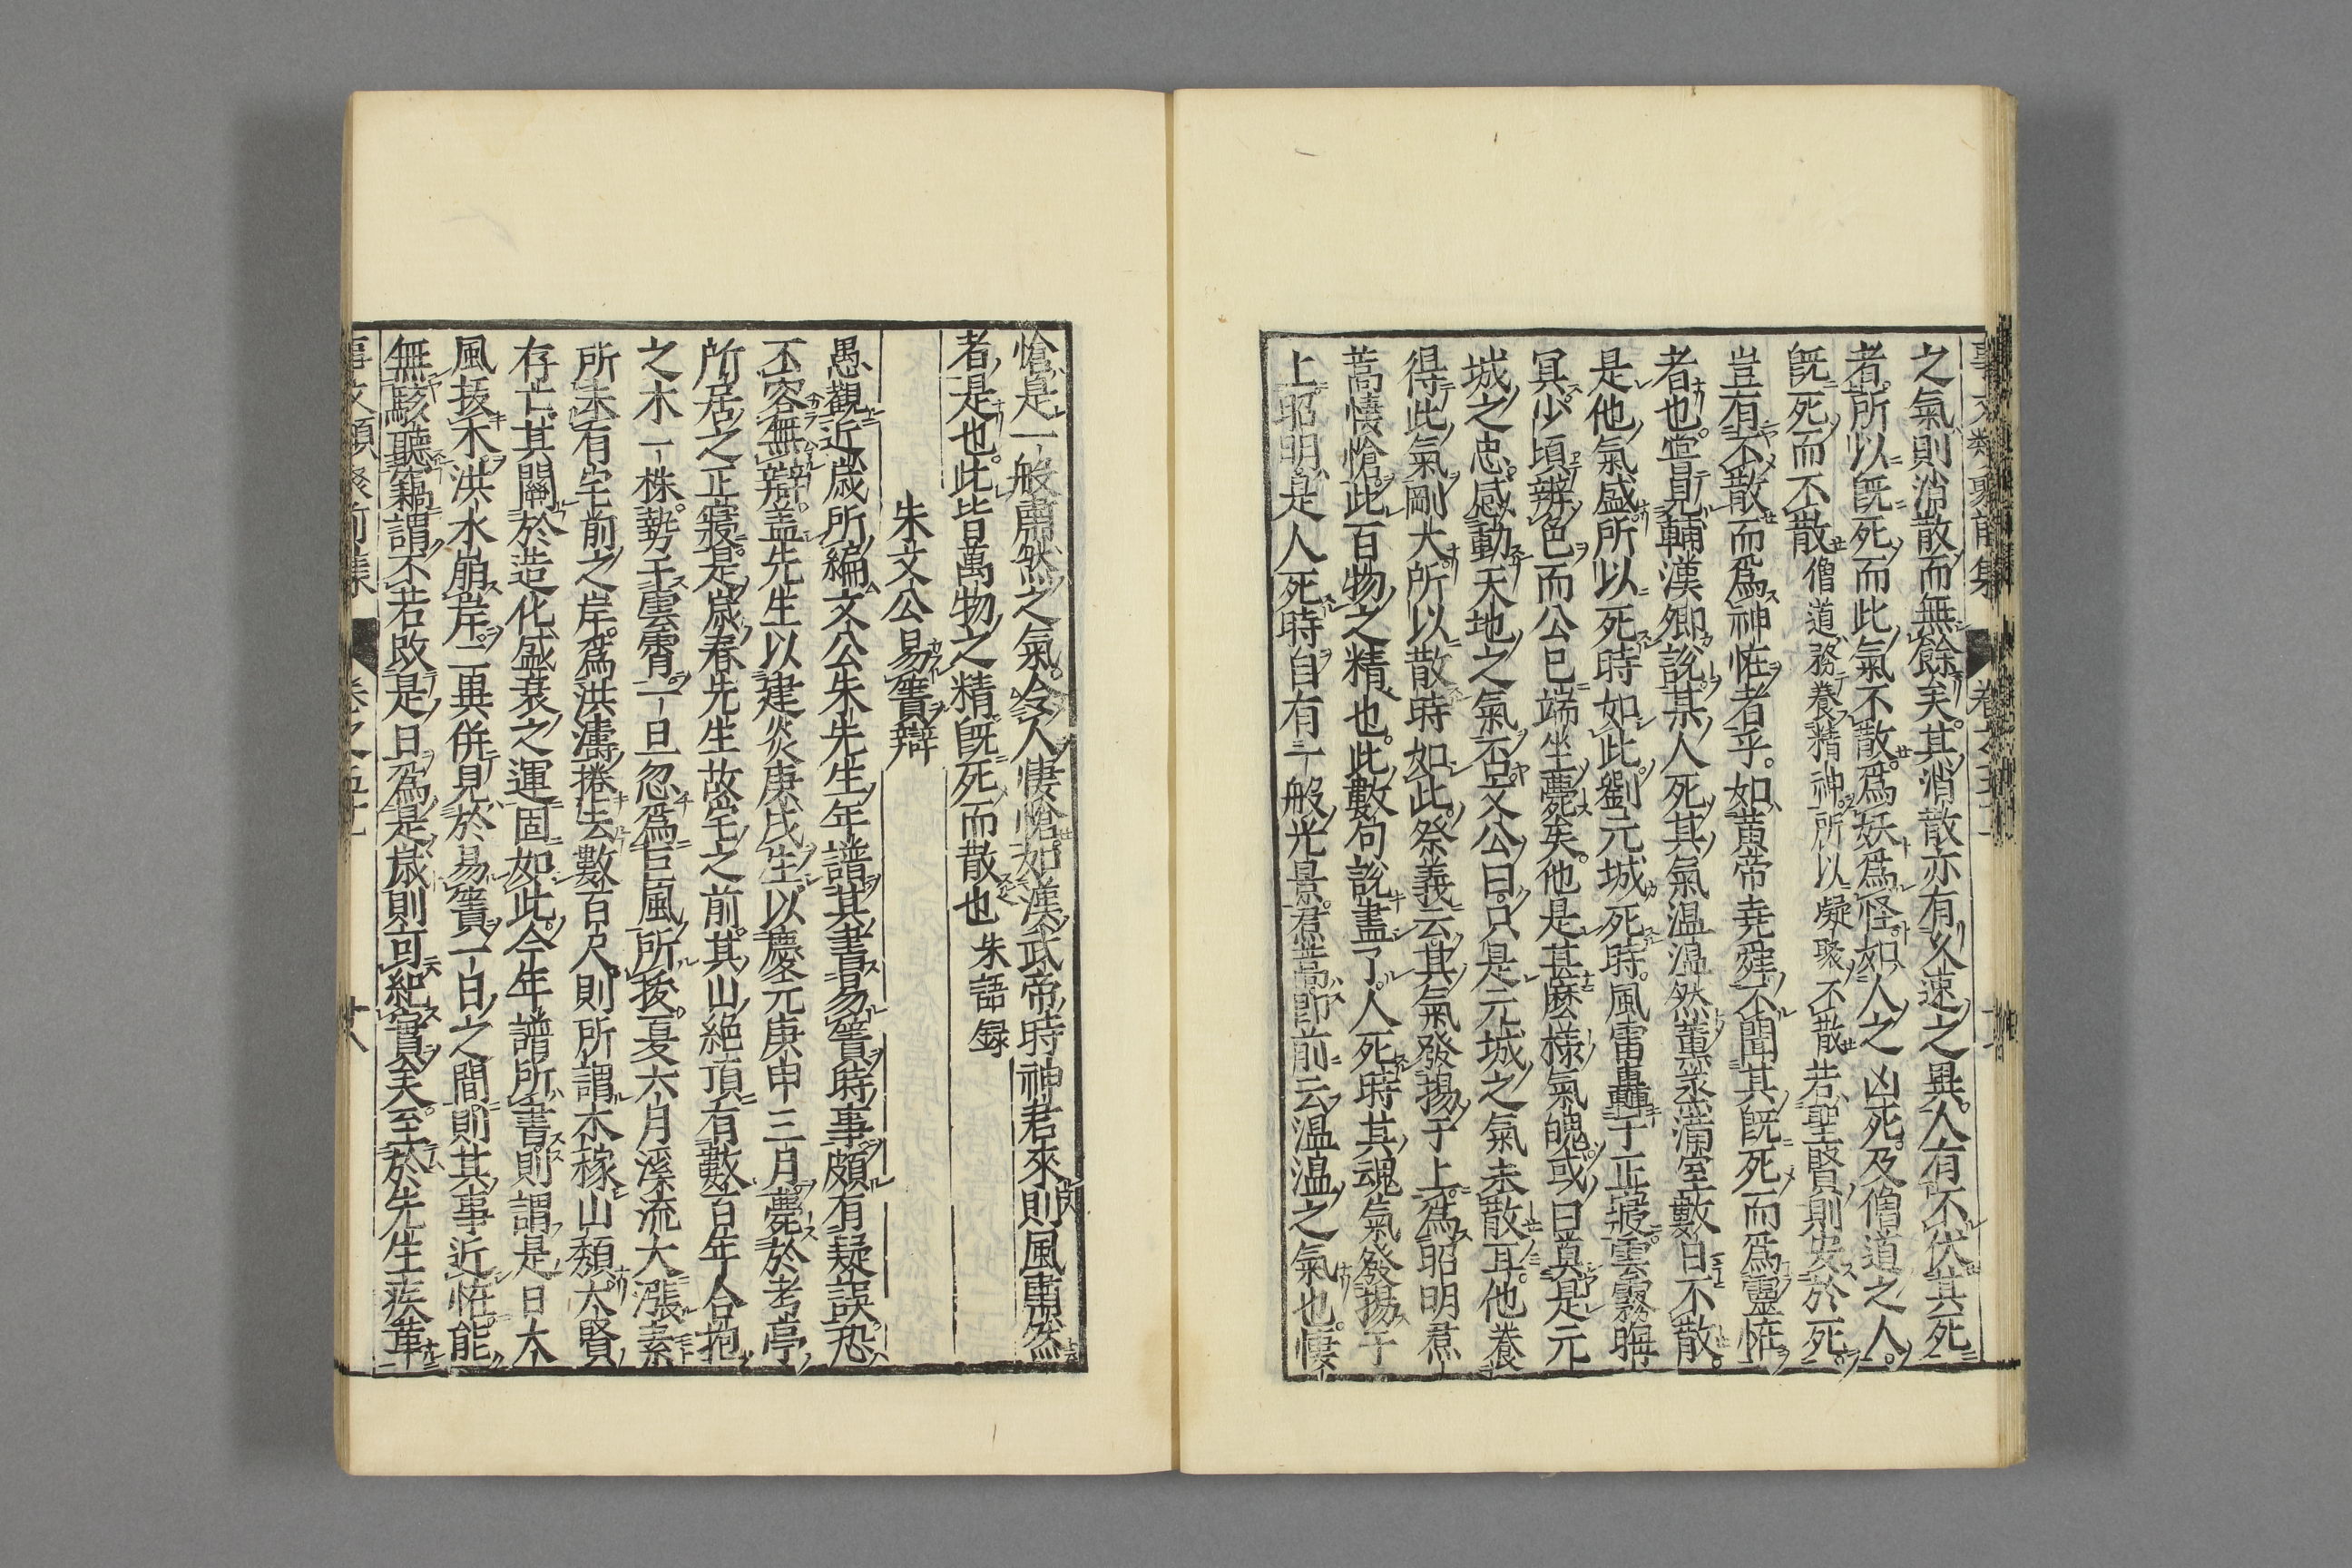 之氣則消散而無餘矣其消散亦有久速之異人有不伏其死
者所以既死而此氣不散爲妖爲怪如人之凶死及僧道之人
既死而不散僧道務養精神所以凝聚不散若聖賢則安於死
豈有不散而爲神怪者乎如黃帝堯舜不聞其既死而爲靈怪
者也嘗見輔漢卿說某人死其氣温温然薰蒸滿室數日不散
是他氣盛所以死時如此劉元城死時風雷轟于正寢雲霧晦
冥少頃辨色而公已端坐薨矣他是甚麼樣氣魄或曰莫是元
城之忠感動天地之氣否文公曰只是元城之氣未散耳他養
得此氣剛大所以散時如此祭義云其氣發揚于上爲昭明焄
蒿悽愴此百物之精也此數句說盡了人死時其魂氣發揚于
上昭明是人死時自有一般光景焄蒿卽前云温温之氣也悽
愴是一般肅然之氣令人悽愴如漢武帝時神君來則風肅然
者是也此皆萬物之精既死而散也朱語録
朱文公易簀辯
愚觀近歲所編文公朱先生年譜其書易簀時事頗有疑誤恐
不容無辯盖先生以建炎庚戌生以慶元庚申三月薨於考亭
所居之正寢是歲春先生故宅之前其山絶頂有數百年合抱
之木一株勢干雲霄一旦忽爲巨風所拔夏六月溪流大漲素
所未有宅前之岸爲洪濤捲去數百尺則所謂木稼山頽大賢
存亡其關於造化盛衰之運固如此今年譜所書則謂是日大
風拔木洪水崩岸二異併見於易簀一日之間則其事近怪能
無駭聽竊謂不若改是日爲是歲則可紀實矣至於先生疾革